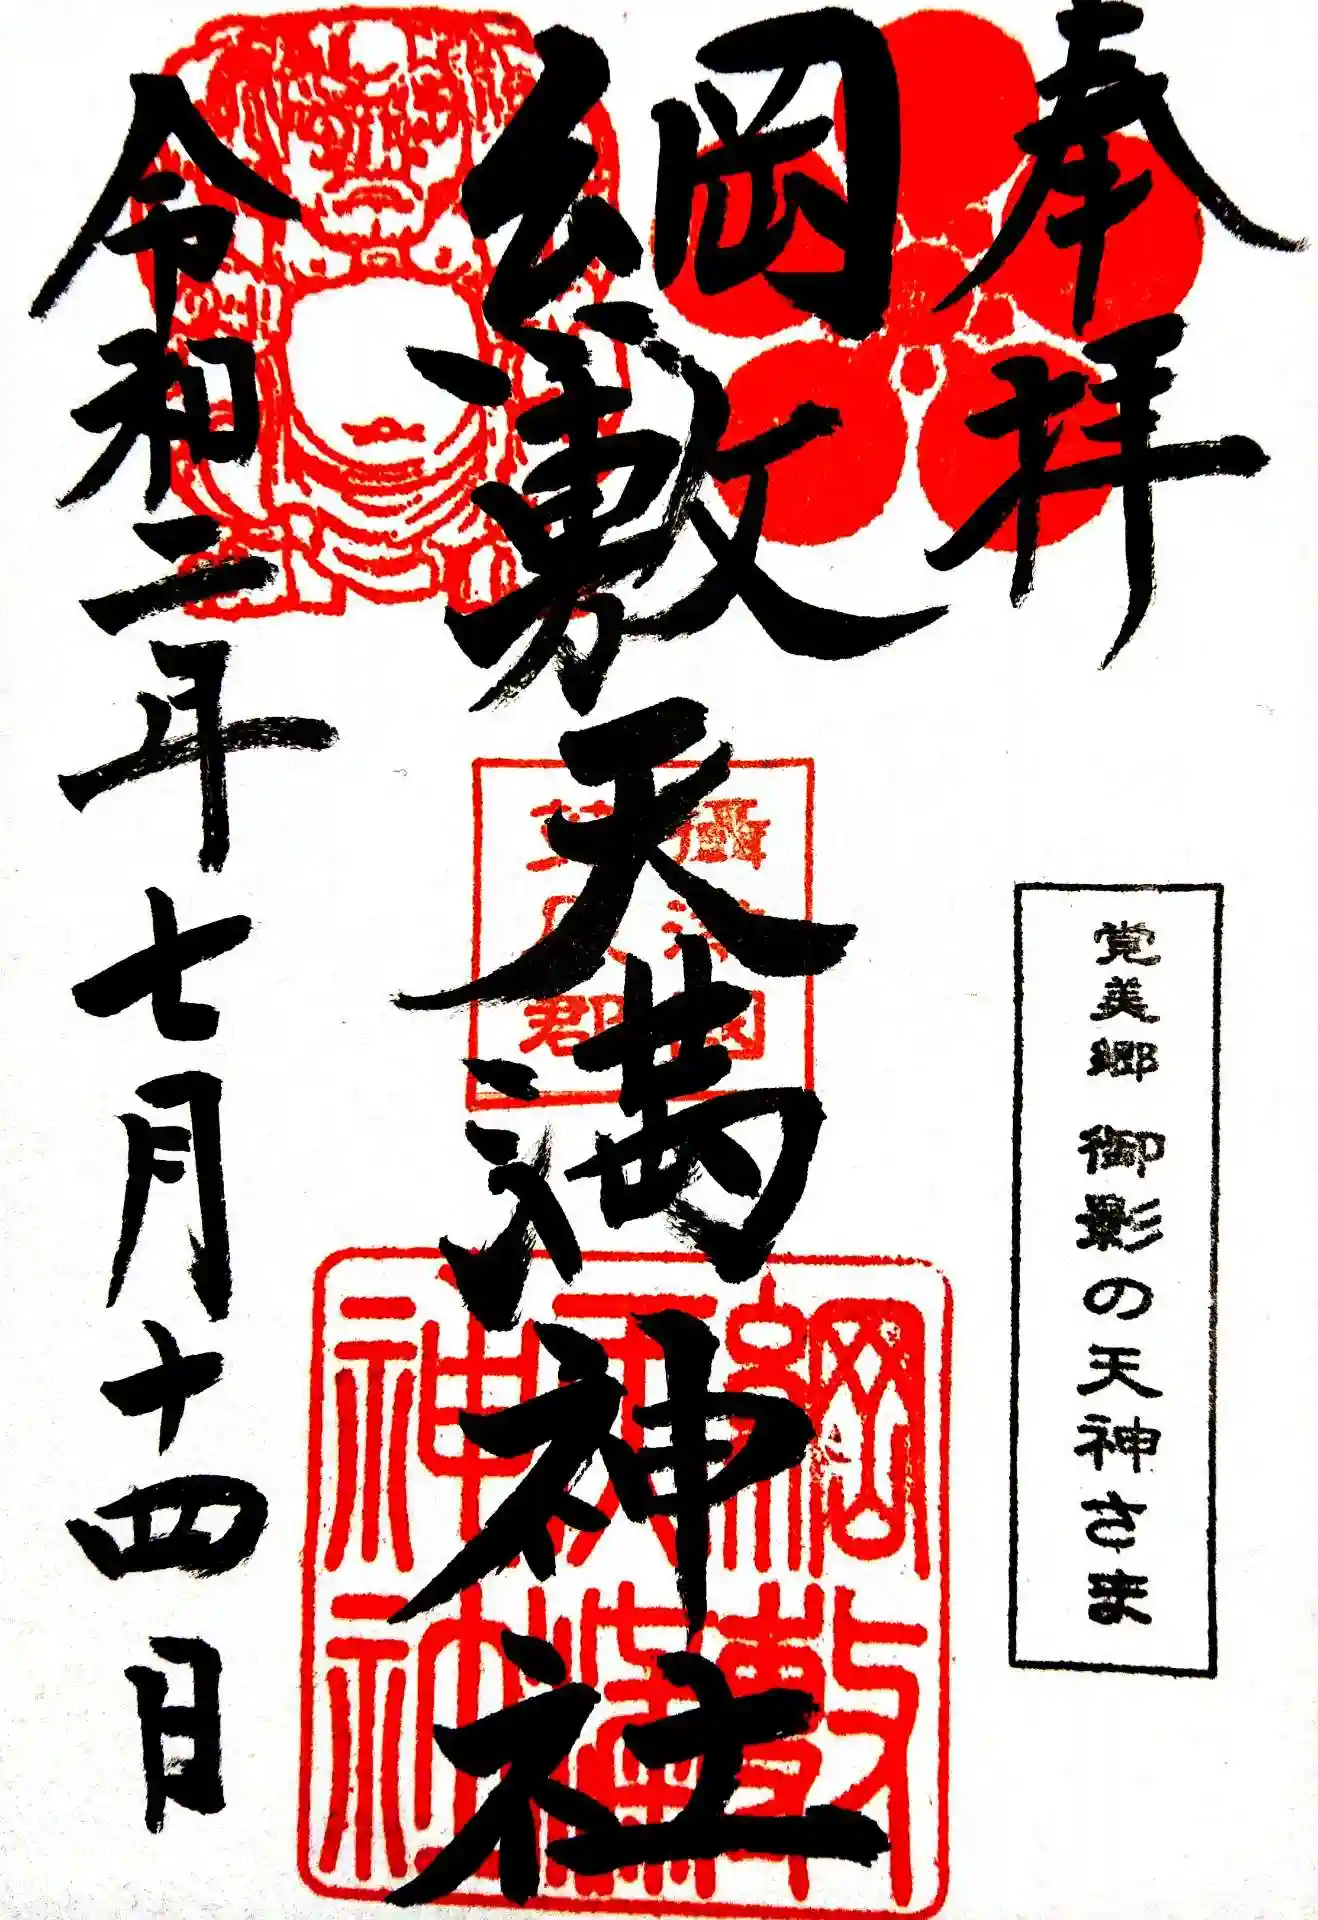 奉拝
覚美郷 御影の天神さま
綱敷天満神社
攝津國
菟原郡
綱敷
天満
神社
令和二年七月十四日